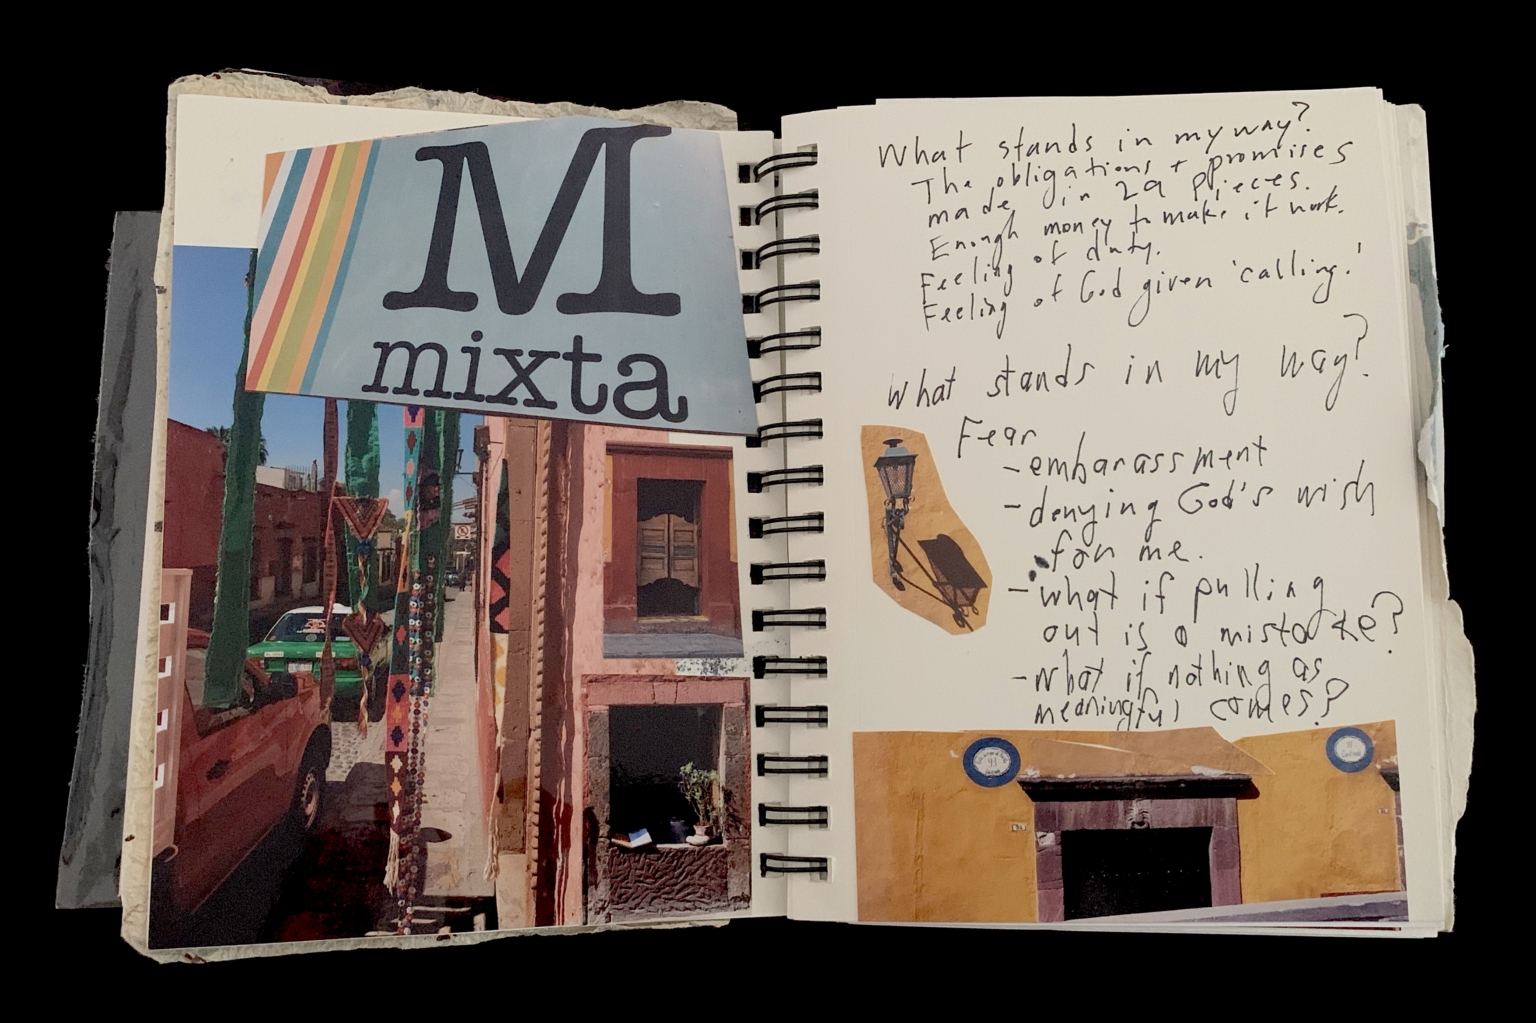 M
mixta
What stands in my way?
The obligations + promises
made in 29 pieces.
Enough money to make it work.
Feeling of duty.
Feeling of God given 'calling.'
What stands in my way?
Fear
- embarassment
- denying God's wish
for me.
- what if pulling
out is a mistake?
- what if nothing as
meaningful comes?
91